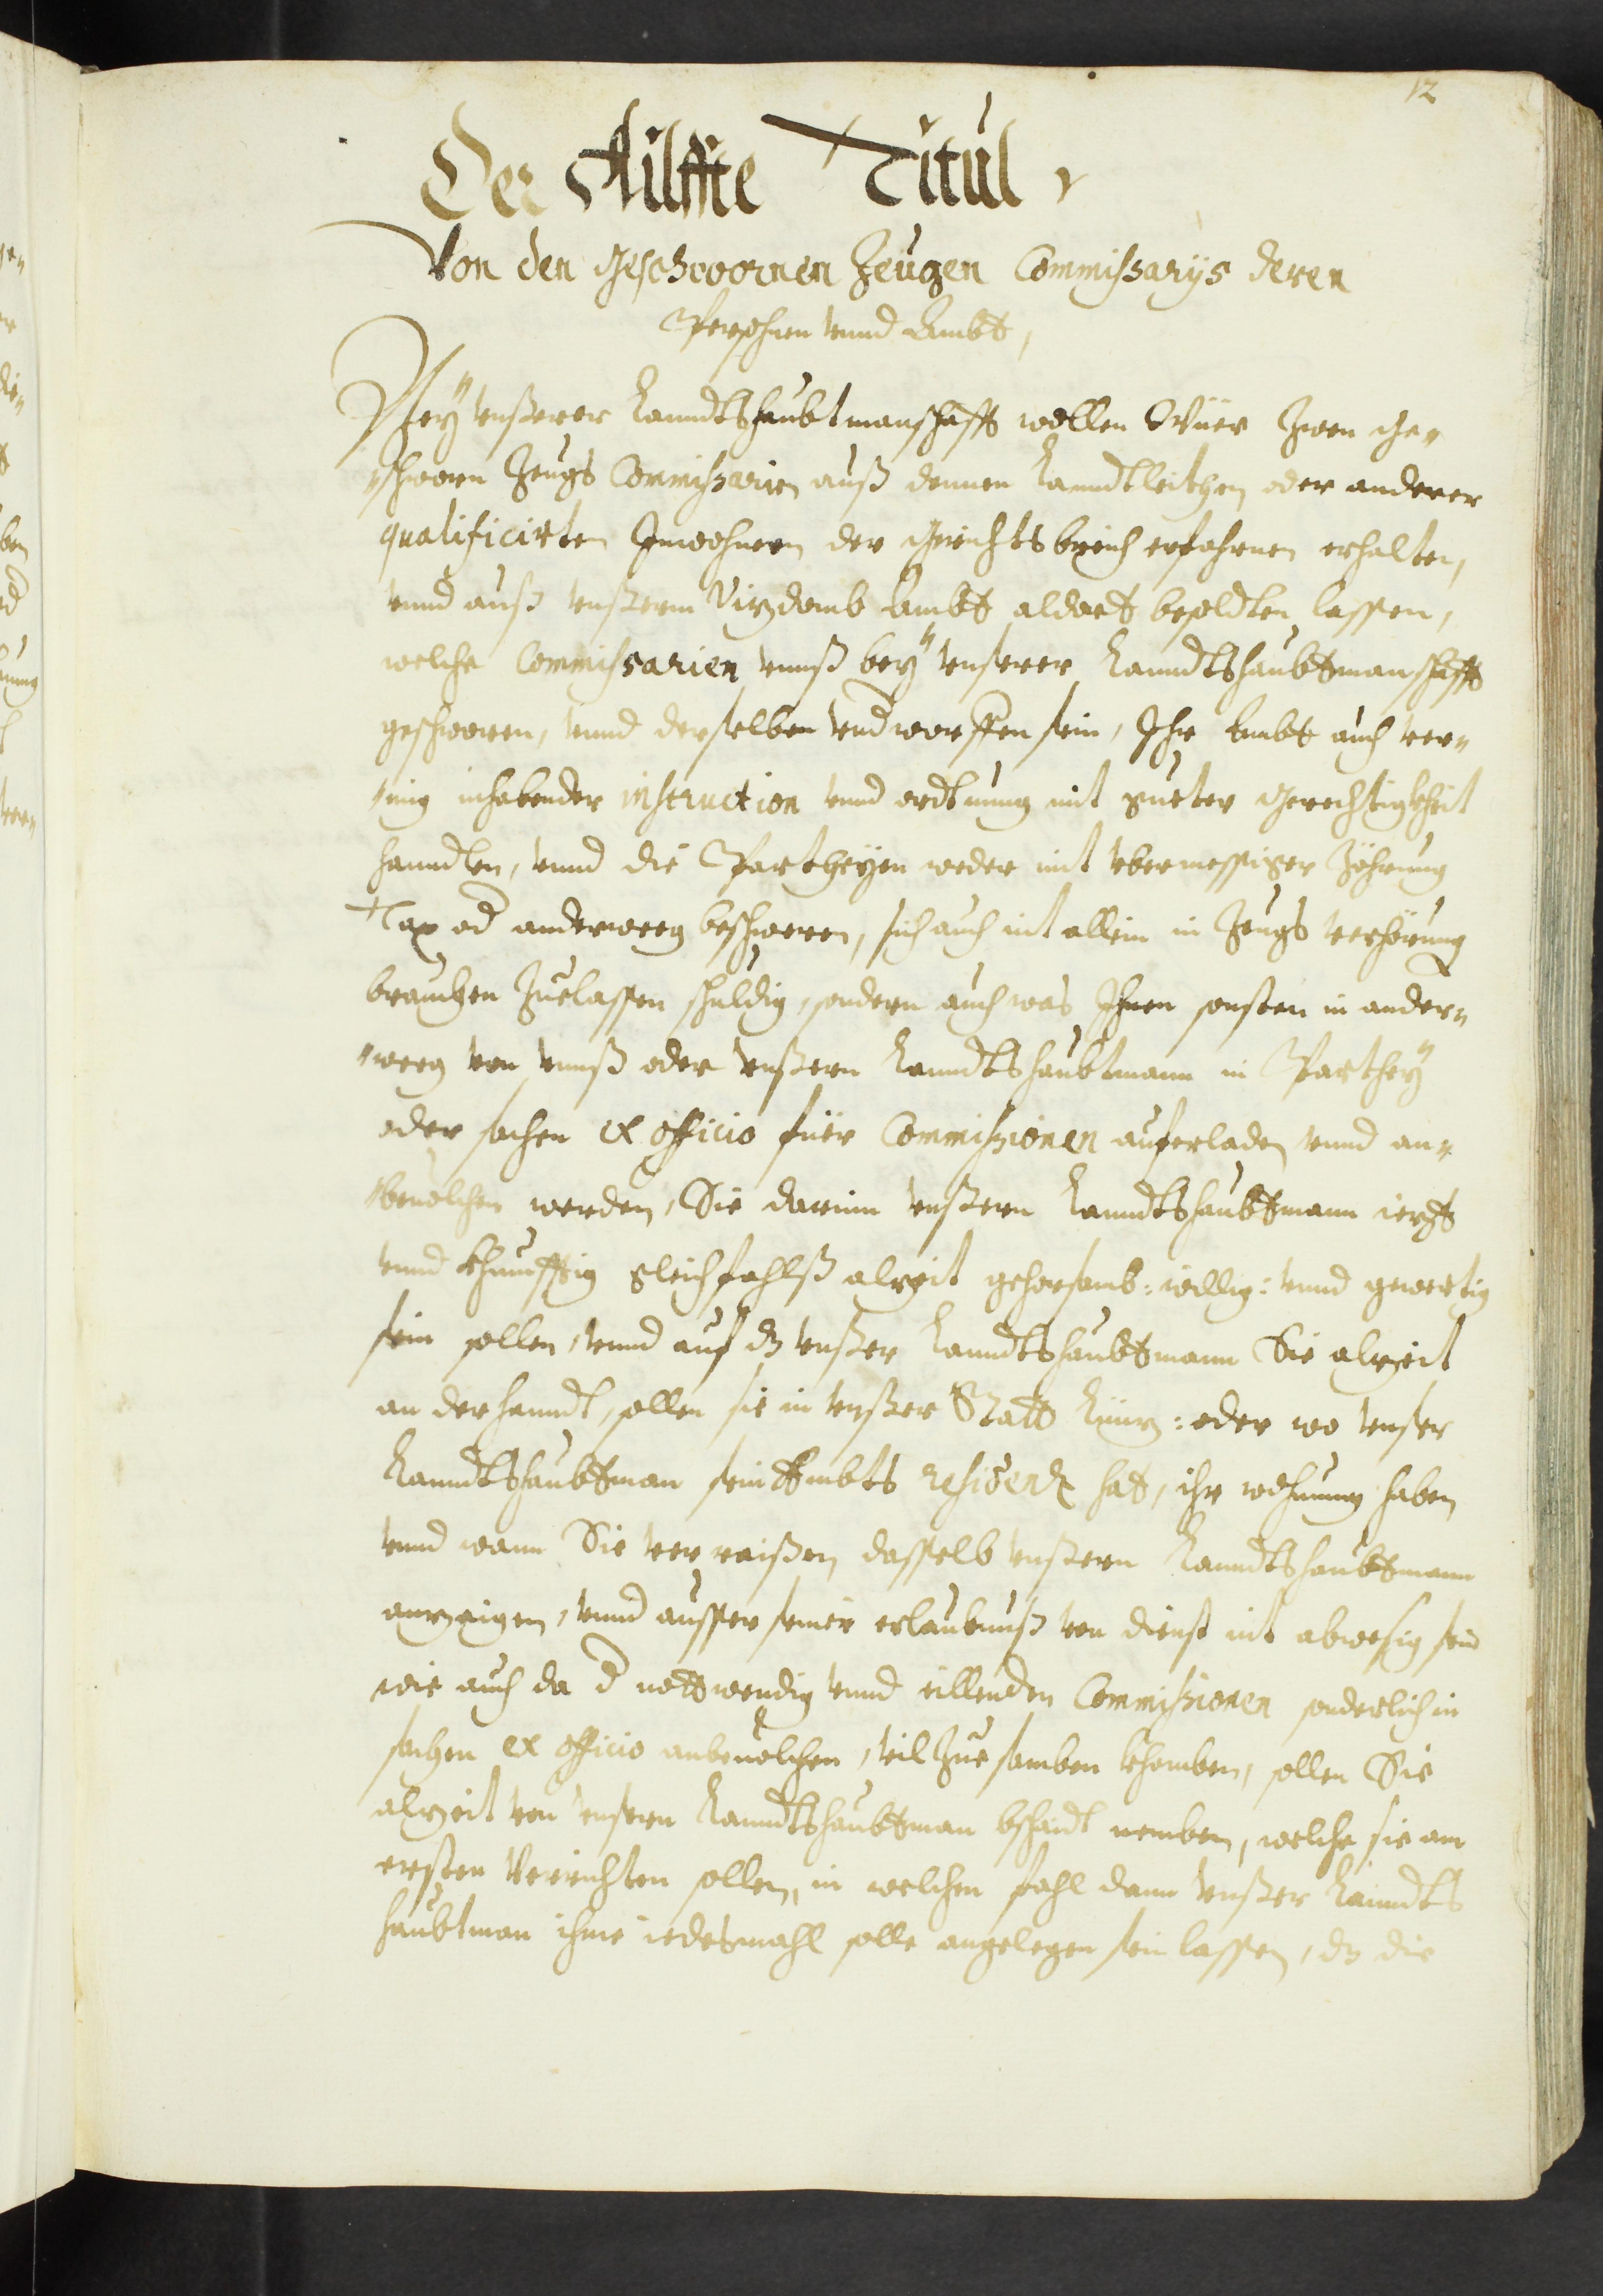 12
Der Ailffte Titul,
Von den Geschwornen Zeugen Commissarys deren
Persohnen unnd Ambt,
Bey unßerer Lanndtshaubtmanschafft wollen Wüer Zwen Ge„
„schworn Zeugs Commissarien auß dennen Lanndtleithen oder anderer
qualificirten Inwohnern der Gerichtsbreich erfahrnen erhalten,
unnd auß unßerm Vizdomb Ambt aldort besoldten lassen,
welche Commissarien unnß bey unserer Lanndtshaubtmanschafft
geschworen, unnd derselben undworffen sein, Ihr Ambt auch ver„
„mig inhabender instruction unnd ordtnung mit gueter Gerechtigkheit
hanndlen, unnd die Partheyen weder mit ubermessiger Zöhrung
Tax od anderweeg beschweren, sich auch nit allein in Zeugs verhörung
brauchen Zuelassen schuldig, sondern auch was Ihnen sonsten in ander„
„weeg von unnß oder unßern Lanndtshaubtmann in Parthey
oder sachen ex officio füer Commissionen auferladen unnd an„
„beuolchen werden, Sie darinn unßern Lanndtshaubtmann iezt
unnd khunfftig gleichfahlß alzeit gehorsamb: willig: unnd gewertig
sein sollen, unnd auf dz unßer Lanndtshaubtmann Sie alzeit
an der hanndt, sollen sie in unßer Statt Linz: oder wo unser
Lanndtshaubtman sein Ambts residenz hat, ihr wohnung haben
unnd wann Sie verraißen, dasselb unßern Lanndtshaubtmann
anzaigen, unnd ausser seiner erlaubnuß von dienst nit abwesig sein
wie auch da d nottwendig unnd eillenden Commissionen sonderlich in
sachen ex officio anbeuolchen, vil Zue samben khomben, sollen Sie
alzeit von unsern Lanndtshaubtman bschaidt nemben, welche sie am
ersten Verrichten sollen, in welchen fahl dann unßer Lanndts
haubtman ihme iedesmahl solle angelegen sein lassen, dz die